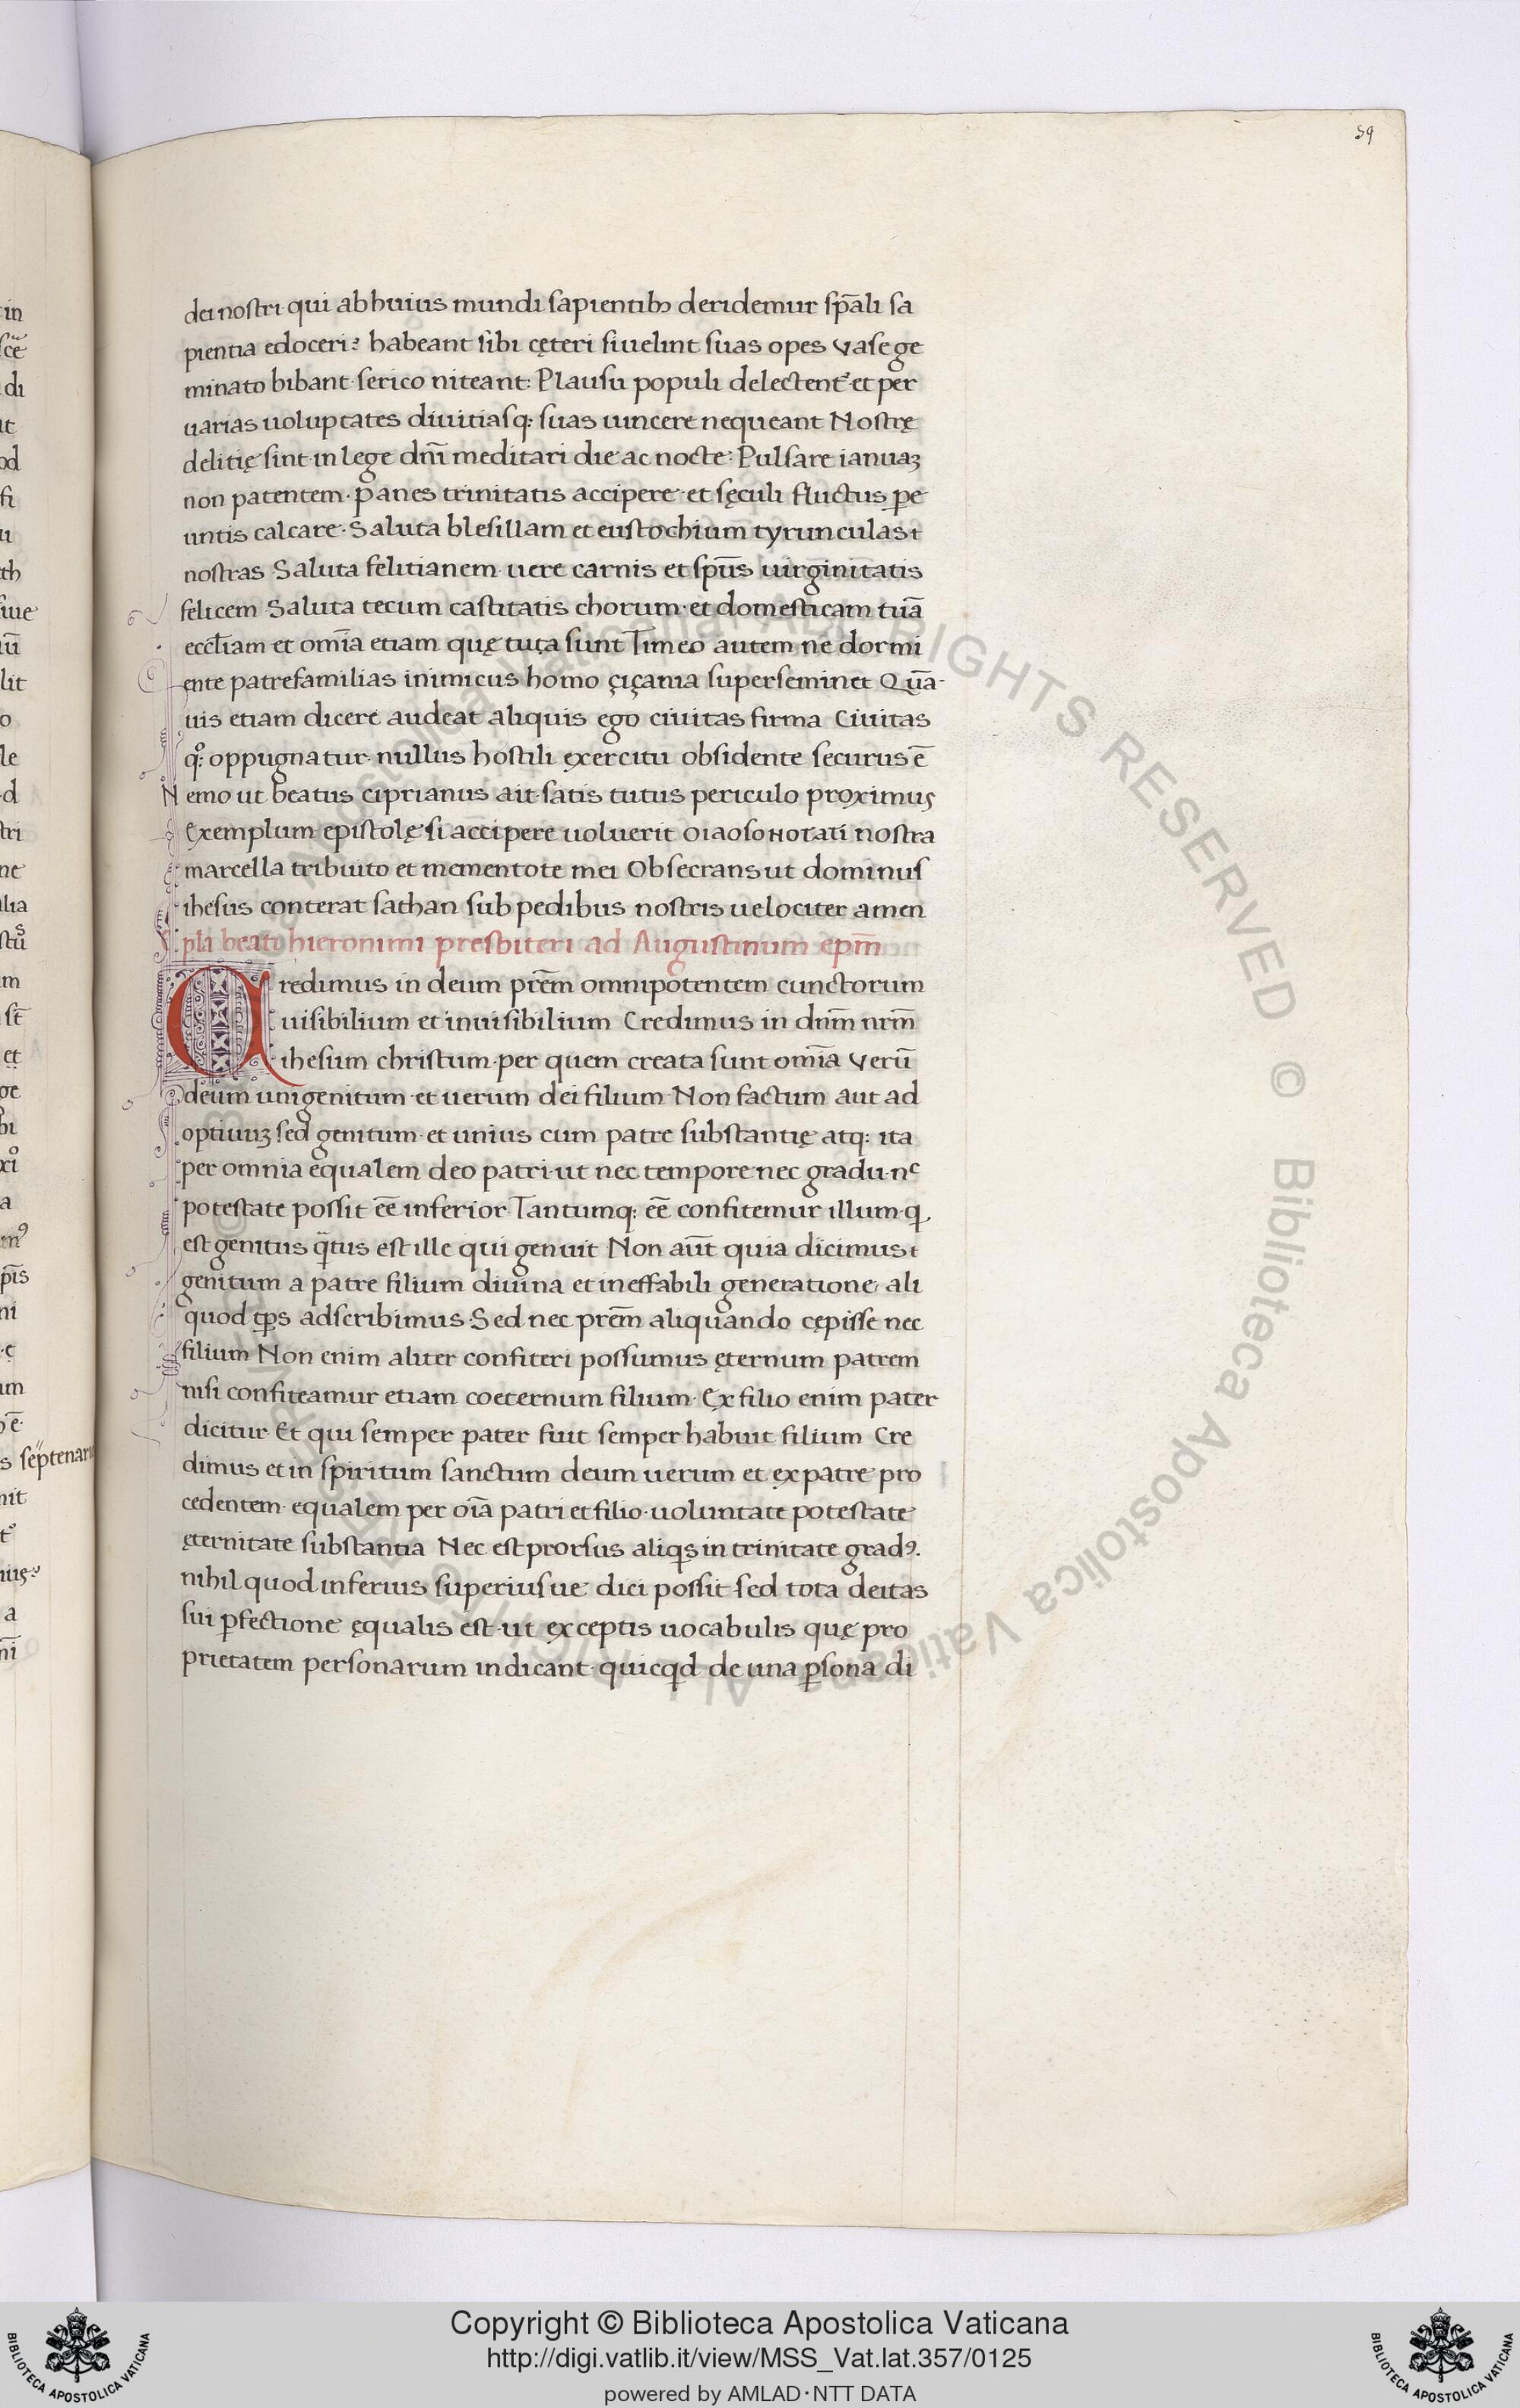 59
dei nostri· qui ab huius mundi sapientibꝫ deridemur sp̄ali sa
pientia edoceri? habeant sibi cęteri si uelint suas opes vase ge
minato bibant· serico niteant: Plausu populi delectent᷑ et per
uarias uoluptates diuitiasq: suas uincere nequeant Nostrę
delitię sint in lege dn̄i meditari die ac nocte: Pulsare ianuaꝫ
non patentem· panes trinitatis accipere· et sęculi fluctus ꝑe
untis calcare· Saluta blesillam et eustochium tyrunculas
nostras Saluta felitianem uere carnis et sp̄us uirginitatis
felicem Saluta tecum castitatis chorum· et domesticam tuā
eccl̄iam et om̄ia etiam quę tuta sunt Timeo autem ne dormi
ente patrefamilias inimicus homo çiçania superseminet Quā
uis etiam dicere audeat aliquis ego ciuitas firma Ciuitas
q: oppugnatur nullus hostili exercitu obsidente securus ē
Nemo ut beatus ciprianus ait satis tutus periculo proximus
Exemplum epistolę si accipere uoluerit nostra
marcella tribuito et mementote mei Obsecrans ut dominus
ihesus conterat sathan sub pedibus nostris uelociter amen
pla beato hieronimi presbiteri ad Augustinum ep̄m
Credimus in deum pr̄em omnipotentem cunctorum
uisibilium et inuisibilium Credimus in dn̄m nr̄m
ihesum christum· per quem creata sunt om̄ia verū
deum unigenitum· et uerum dei filium Non factum aut ad
optiuuꝫ sed genitum· et unius cum patre substantię atq: ita
per omnia equalem deo patri· ut nec tempore nec gradu· nc
potestate possit ēe inferior Tantumq: ēe confitemur illum· q
est genitus qtus est ille qui genuit Non aūt quia dicimus
genitum a patre filium diuina et ineffabili generatione ali
quod tp̄s adscribimus· Sed nec pr̄em aliquando cępisse nec
filium Non enim aliter confiteri possumus ęternum patrem
nisi confiteamur etiam coeternum filium· Ex filio enim pater
dicitur Et qui semper pater fuit semper habuit filium Cre
dimus et in spiritum sanctum deum uerum et ex patre pro
cedentem· equalem per oīa patri et filio· uoluntate potestate
ęternitate substantia Nec est prorsus aliqs in trinitate gradꝰ.
nihil quod inferius superiusue dici possit sed tota deitas
sui ꝑfectione ęqualis est· ut exceptis uocabulis quę pro
prietatem personarum indicant· quicqd de una ꝑsona di
Copyright © Biblioteca Apostolica Vaticana
http://digi.vatlib.it/view/MSS_Vat.lat.357/0125
powered by AMLAD·NTT DATA